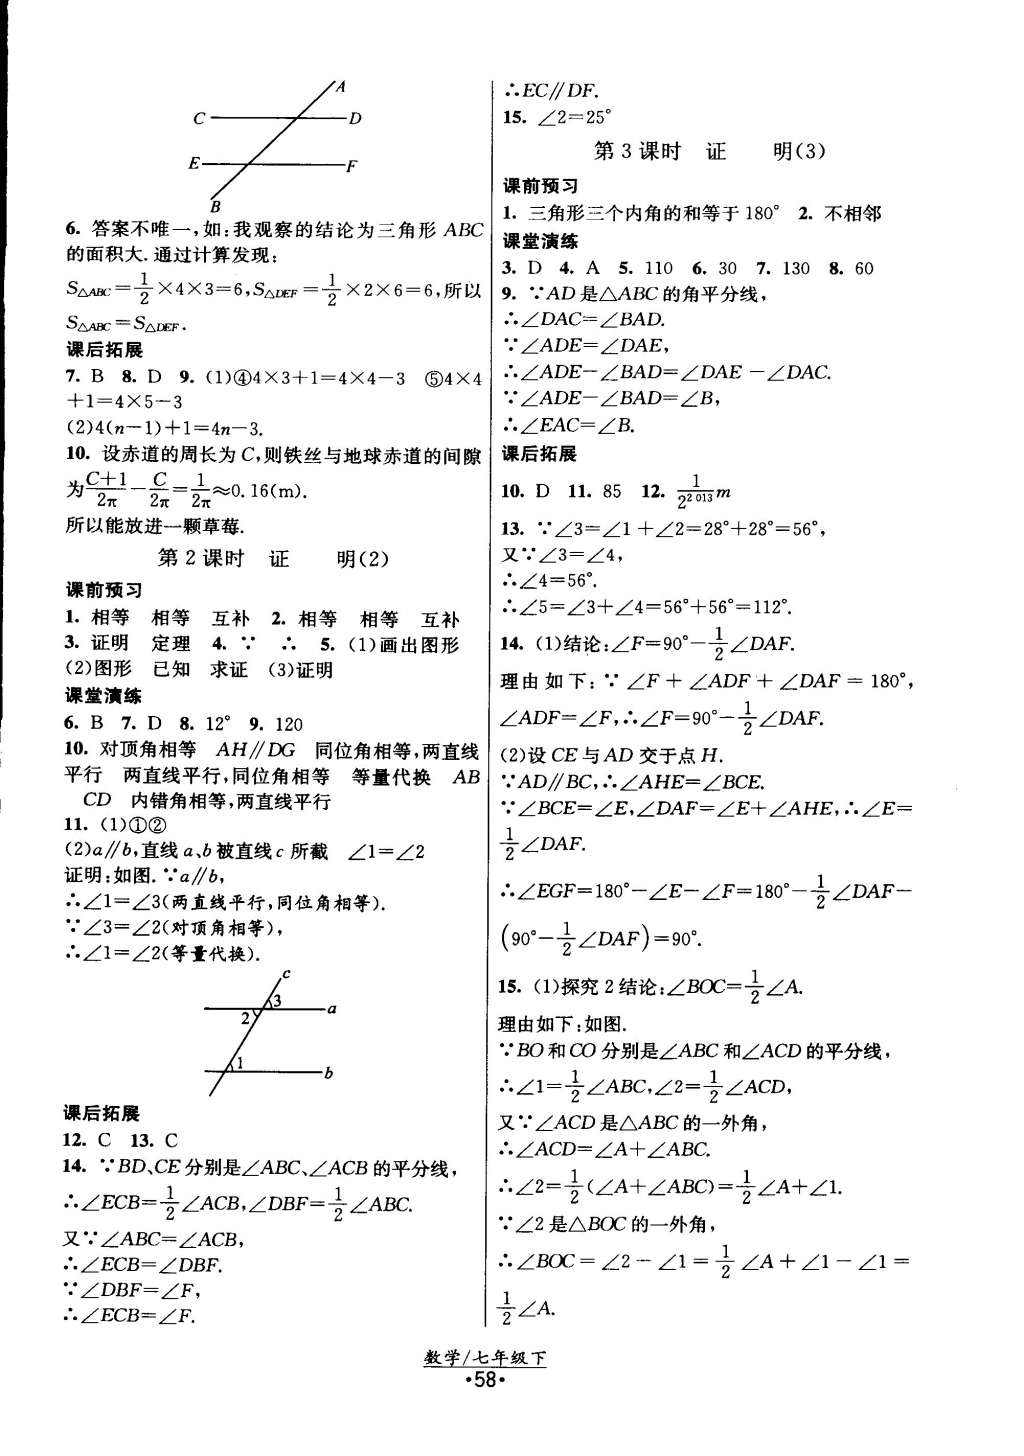 A
C D
E F
B
6. 答案不唯一,如:我观察的结论为三角形 ABC
的面积大.通过计算发现:
S△ABC=1/2×4×3=6,S△DEF=1/2×2×6=6,所以
S△ABC=S△DEF.
课后拓展
7. B 8. D 9. (1)④4×3+1=4×4-3 ⑤4×4
+1=4×5-3
(2)4(n-1)+1=4n-3.
10. 设赤道的周长为 C,则铁丝与地球赤道的间隙
为(C+1)/2π-C/2π=1/2π≈0.16(m).
所以能放进一颗草莓.
第 2 课时 证 明(2)
课前预习
1. 相等 相等 互补 2. 相等 相等 互补
3. 证明 定理 4. ∵ ∴ 5. (1)画出图形
(2)图形 已知 求证 (3)证明
课堂演练
6. B 7. D 8. 12° 9. 120
10. 对顶角相等 AH∥DG 同位角相等,两直线
平行 两直线平行,同位角相等 等量代换 AB
CD 内错角相等,两直线平行
11. (1)①②
(2)a∥b,直线 a、b 被直线 c 所截 ∠1=∠2
证明:如图.∵a∥b,
∴∠1=∠3(两直线平行,同位角相等).
∵∠3=∠2(对顶角相等),
∴∠1=∠2(等量代换).
c
3
a
2
1
b
课后拓展
12. C 13. C
14. ∵BD、CE 分别是∠ABC、∠ACB 的平分线,
∴∠ECB=1/2∠ACB,∠DBF=1/2∠ABC.
又∵∠ABC=∠ACB,
∴∠ECB=∠DBF.
∵∠DBF=∠F,
∴∠ECB=∠F.
∴EC∥DF.
15. ∠2=25°
第 3 课时 证 明(3)
课前预习
1. 三角形三个内角的和等于 180° 2. 不相邻
课堂演练
3. D 4. A 5. 110 6. 30 7. 130 8. 60
9. ∵AD 是△ABC 的角平分线,
∴∠DAC=∠BAD.
∵∠ADE=∠DAE,
∴∠ADE-∠BAD=∠DAE-∠DAC.
∵∠ADE-∠BAD=∠B,
∴∠EAC=∠B.
课后拓展
10. D 11. 85 12. 1/2^2 013 m
13. ∵∠3=∠1+∠2=28°+28°=56°,
又∵∠3=∠4,
∴∠4=56°.
∴∠5=∠3+∠4=56°+56°=112°.
14. (1)结论:∠F=90°-1/2∠DAF.
理由如下:∵∠F+∠ADF+∠DAF=180°,
∠ADF=∠F,∴∠F=90°-1/2∠DAF.
(2)设 CE 与 AD 交于点 H.
∵AD∥BC,∴∠AHE=∠BCE.
∵∠BCE=∠E,∠DAF=∠E+∠AHE,∴∠E=
1/2∠DAF.
∴∠EGF=180°-∠E-∠F=180°-1/2∠DAF-
(90°-1/2∠DAF)=90°.
15. (1)探究 2 结论:∠BOC=1/2∠A.
理由如下:如图.
∵BO 和 CO 分别是∠ABC 和∠ACD 的平分线,
∴∠1=1/2∠ABC,∠2=1/2∠ACD,
又∵∠ACD 是△ABC 的一外角,
∴∠ACD=∠A+∠ABC.
∴∠2=1/2(∠A+∠ABC)=1/2∠A+∠1.
∵∠2 是△BOC 的一外角,
∴∠BOC=∠2-∠1=1/2∠A+∠1-∠1=
1/2∠A.
数学/七年级下
·58·